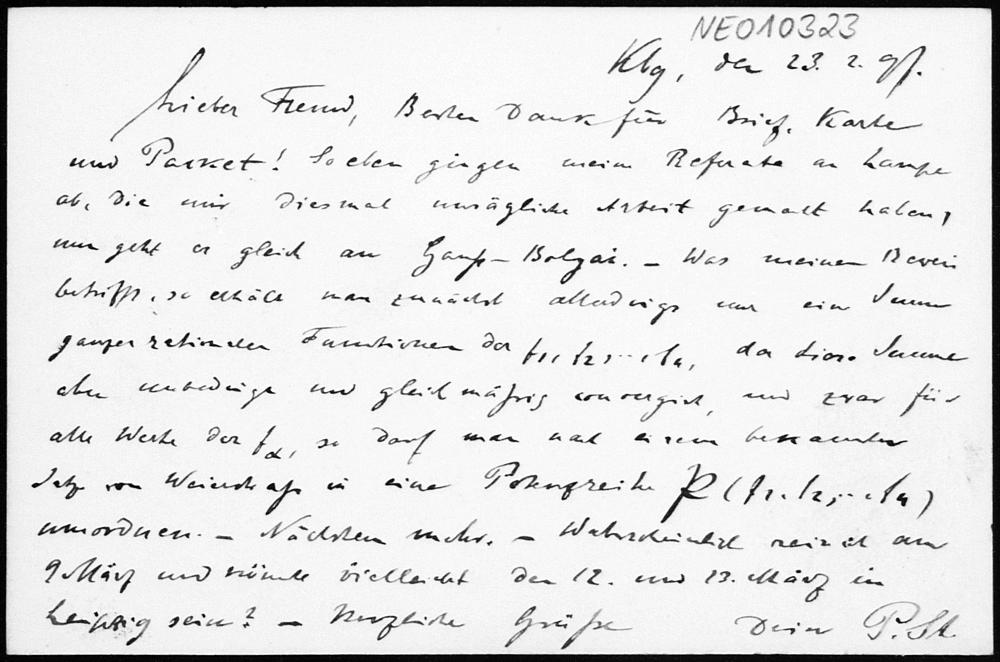 NEO10323
Kbg, den 23. 2. 97.
Lieber Freund, Besten Dank für Brief, Karte
und Packet! Soeben gingen meine Referate an Lampe
ab, die mir diesmal unsägliche Arbeit gemacht haben,
nun geht es gleich an Gauß-Bolyai. – Was meinen Beweis
betrifft, so erhält man zunächst allerdings nur eine Summe
ganzer rationalen Functionen der f1, f2, ... fn, da diese Summe
aber unbedingt und gleichmäßig convergirt, und zwar für
alle Werte der fα, so darf man nach einem bekannten
Satze von Weierstraß in eine Potenzreihe P (f1, f2, ... fn)
umordnen. – Nächstens mehr. – Wahrscheinlich reise ich am
9. März und könnte vielleicht den 12. und 13. März in
Leipzig sein? – Herzliche Grüße Dein P. St.